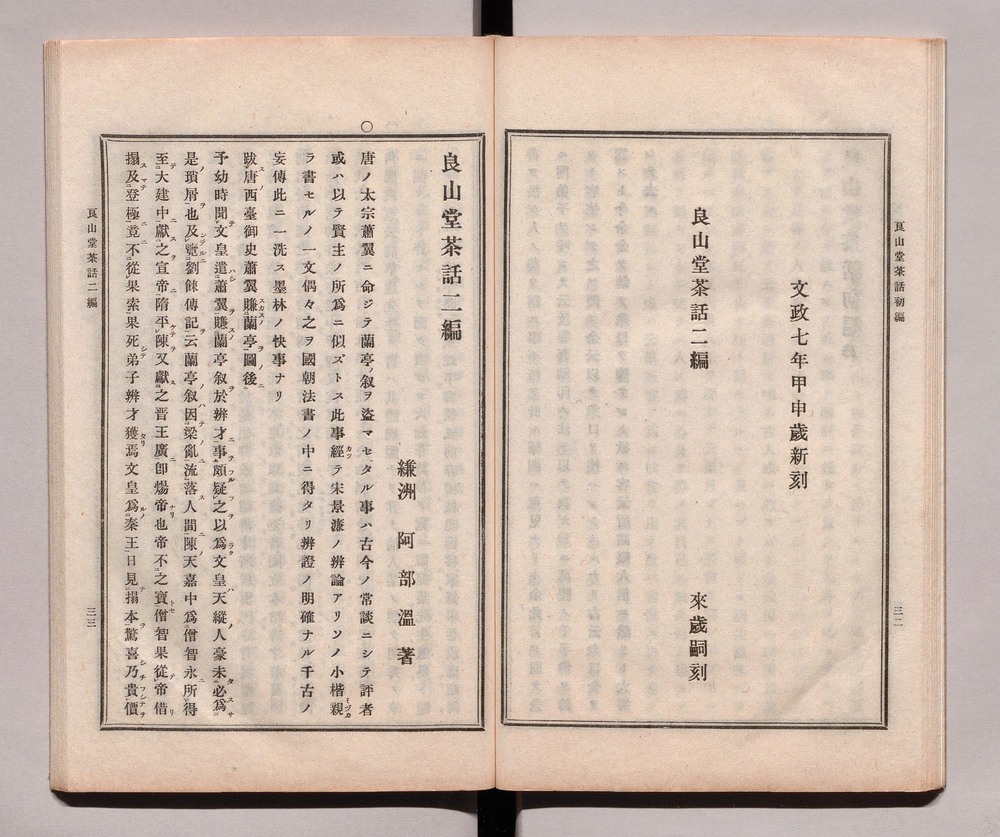 良山堂茶話初編
三二
文政七年甲申歲新刻
良山堂茶話二編
來歲嗣刻
良山堂茶話二編
縑洲 阿部溫著
○
唐ノ太宗蕭翼ニ命ジテ蘭亭ノ叙ヲ盜マセタル事ハ古今ノ常談ニシテ評者
或ハ以テ賢主ノ所爲ニ似ズトス此事經テ宋景濂ノ辨論アリソノ小楷親
ラ書セルノ一文偶々之ヲ國朝法書ノ中ニ得タリ辨證ノ明確ナル千古ノ
妄傳此ニ一洗ス墨林ノ快事ナリ
跋唐西臺御史蕭翼賺蘭亭圖後
予幼時聞文皇遣蕭翼賺蘭亭叙於辨才事頗疑之以爲文皇天縱人豪未必爲
是瑣屑也及覽劉餗傳記云蘭亭叙因梁亂流落人間陳天嘉中爲僧智永所得
至大建中獻之宣帝隋平陳又獻之晋王廣卽煬帝也帝不之寶僧智果從帝借
搨及登極竟不從果索果死弟子辨才獲焉文皇爲秦王日見搨本驚喜乃貴價
良山堂茶話二編
三三